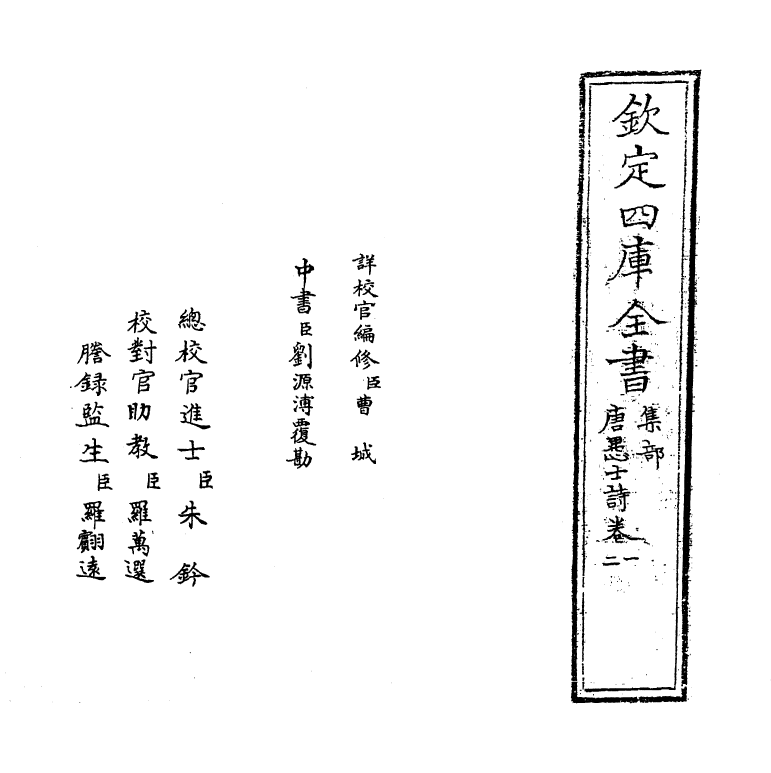 欽定四庫全書
集部
唐愚士詩卷一
二
詳校官編修臣曹城
中書臣劉源溥覆勘
總校官進士臣朱鈐
校對官助教臣羅萬選
謄錄監生臣羅翽遠